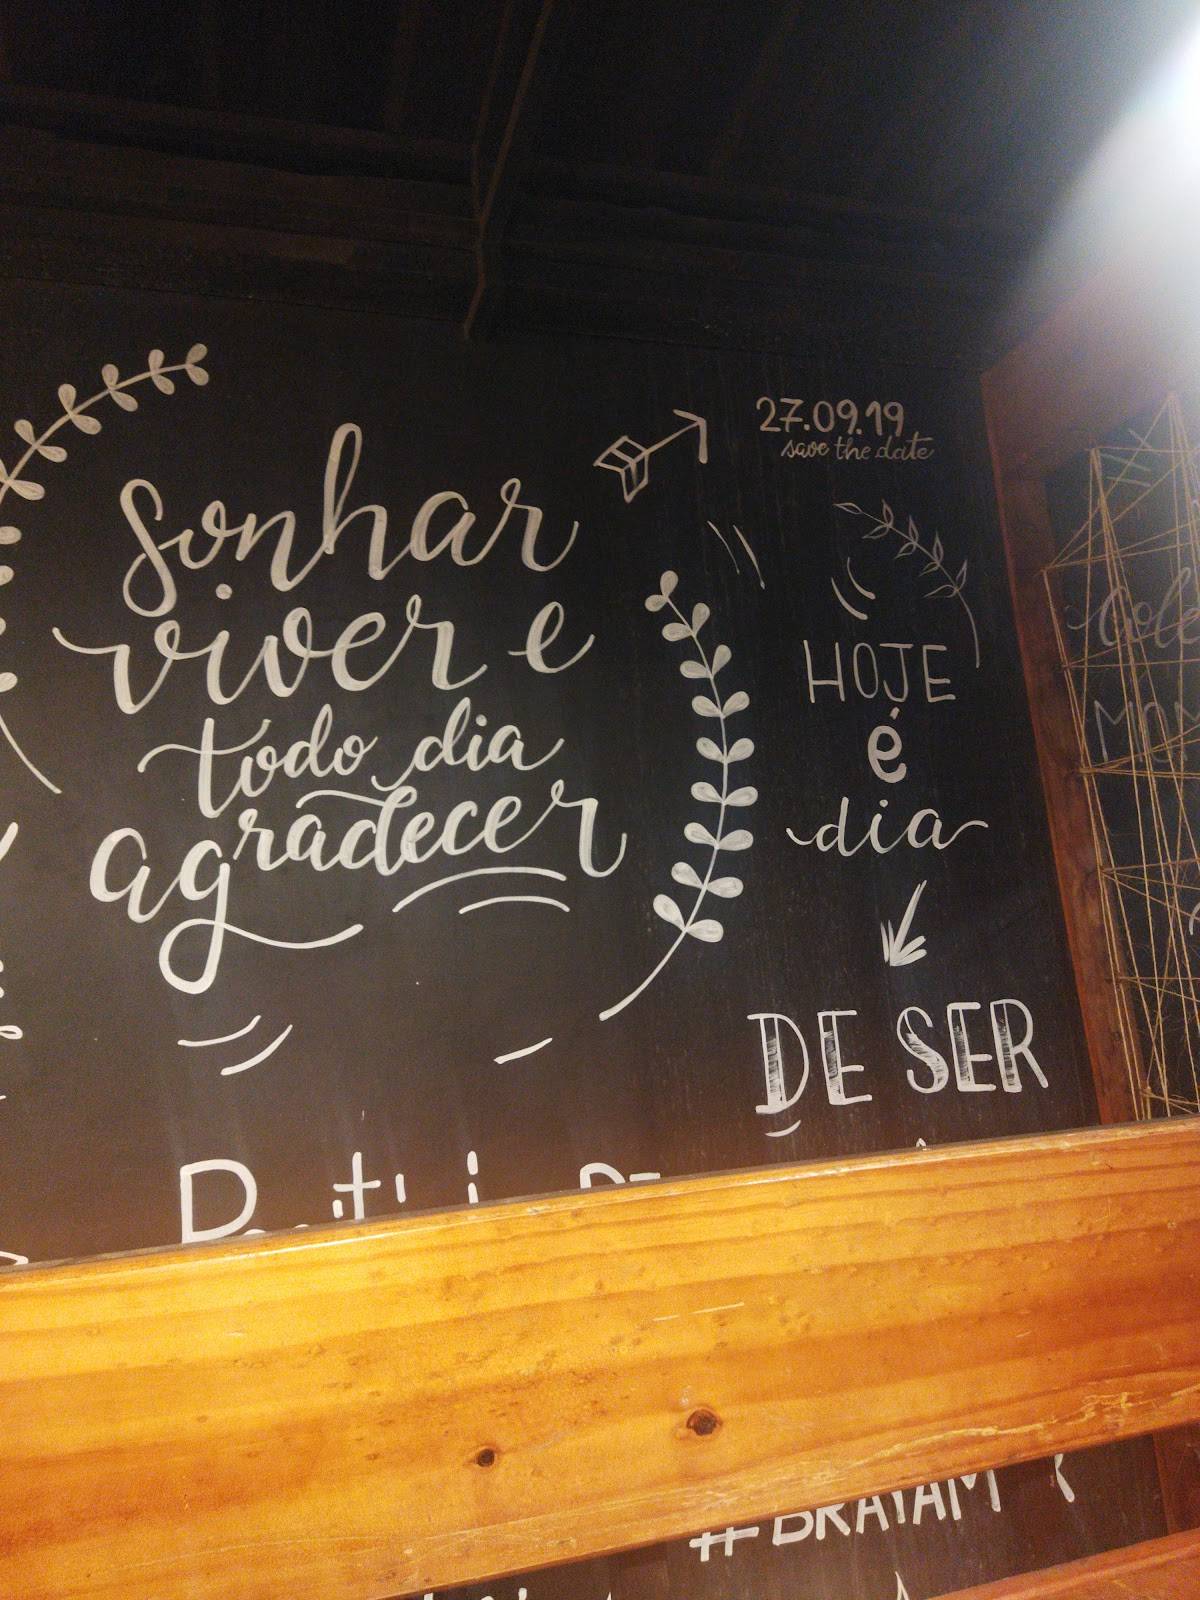 Sonhar
viver e
todo dia
agradecer
27.09.19
save the date
HOJE
é
dia
DE SER
#BRAYAM